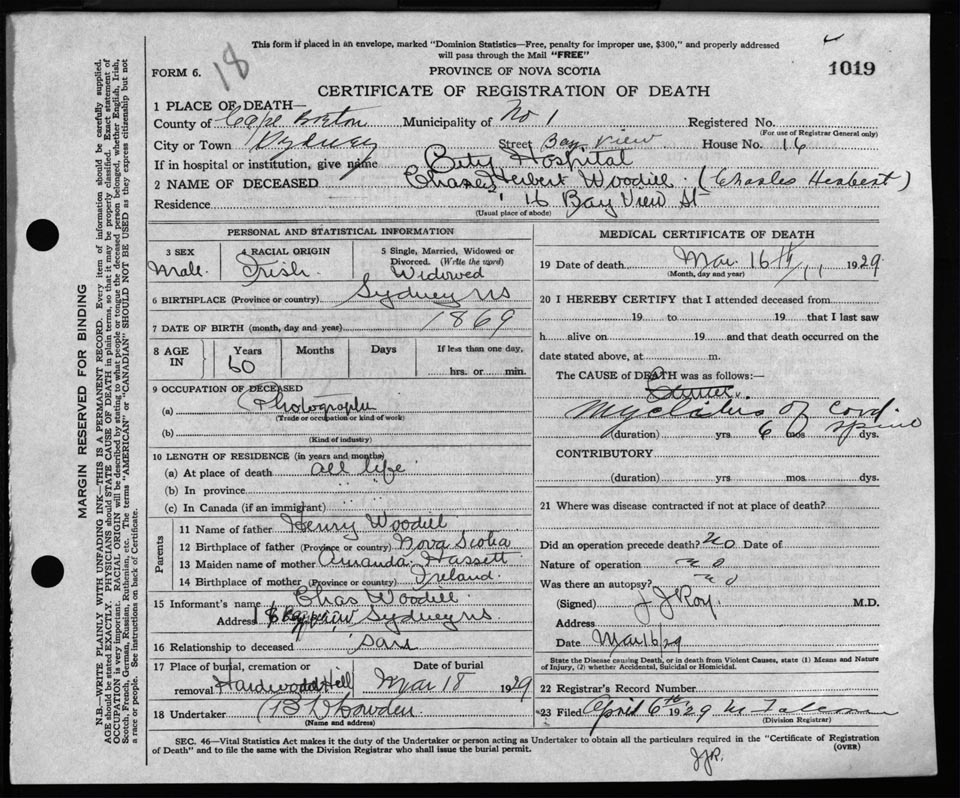 This form if placed in an envelope, marked "Dominion Statistics—Free, penalty for improper use, $300," and properly addressed
will pass through the Mail "FREE"
18
FORM 6.
PROVINCE OF NOVA SCOTIA
1019
CERTIFICATE OF REGISTRATION OF DEATH
1 PLACE OF DEATH—
County of Cape Breton Municipality of No 1 Registered No.
(For use of Registrar General only)
City or Town Sydney Street Bay View House No. 16
If in hospital or institution, give name City Hospital
2 NAME OF DECEASED Charles Herbert Woodill. (Charles Herbert)
Residence 16 Bay View St
(Usual place of abode)
PERSONAL AND STATISTICAL INFORMATION
3 SEX
Male.
4 RACIAL ORIGIN
Irish.
5 Single, Married, Widowed or
Divorced. (Write the word)
Widowed
6 BIRTHPLACE (Province or country) Sydney NS
7 DATE OF BIRTH (month, day and year) 1869
8 AGE
IN
Years
60
Months
Days
If less than one day,
hrs. or min.
9 OCCUPATION OF DECEASED
(a) Photographer
(Trade or occupation or kind of work)
(b)
(Kind of industry)
10 LENGTH OF RESIDENCE (in years and months)
(a) At place of death all life
(b) In province " "
(c) In Canada (if an immigrant) " "
Parents
11 Name of father Henry Woodill
12 Birthplace of father (Province or country) Nova Scotia
13 Maiden name of mother Amanda Hassett
14 Birthplace of mother (Province or country) Ireland.
15 Informant's name Chas Woodill
Address 16 Bay View Sydney NS
16 Relationship to deceased son
17 Place of burial, cremation or
removal Hardwood Hill
Date of burial
Mar 18 1929
18 Undertaker
(Name and address)
MEDICAL CERTIFICATE OF DEATH
19 Date of death Mar. 16th 1929
(Month, day and year)
20 I HEREBY CERTIFY that I attended deceased from
19 to 19 that I last saw
h alive on 19 and that death occurred on the
date stated above, at m.
The CAUSE of DEATH was as follows:—
Myelitis of cord
spine
(duration) yrs 6 mos dys.
CONTRIBUTORY
(duration) yrs mos dys.
21 Where was disease contracted if not at place of death?
Did an operation precede death? No Date of
Nature of operation no
Was there an autopsy? no
(Signed) J J Roy. M.D.
Address
Date Mar 16/29
State the Disease causing Death, or in death from Violent Causes, state (1) Means and Nature
of Injury, (2) whether Accidental, Suicidal or Homicidal.
22 Registrar's Record Number
23 Filed April 6th 1929
(Division Registrar)
SEC. 46—Vital Statistics Act makes it the duty of the Undertaker or person acting as Undertaker to obtain all the particulars required in the "Certificate of Registration
of Death" and to file the same with the Division Registrar who shall issue the burial permit.
(OVER)
JJR.
MARGIN RESERVED FOR BINDING
N.B.—WRITE PLAINLY WITH UNFADING INK—THIS IS A PERMANENT RECORD. Every item of information should be carefully supplied.
AGE should be stated EXACTLY. PHYSICIANS should STATE CAUSE OF DEATH in plain terms, so that it may be properly classified. Exact statement of
OCCUPATION is very important. RACIAL ORIGIN will be described by stating to what people or tongue the deceased person belonged, whether English, Irish,
Scotch, French, German, Russian, Ruthenian, etc. The terms "AMERICAN" or "CANADIAN" SHOULD NOT BE USED as they express citizenship but not
a race or people. See instructions on back of Certificate.